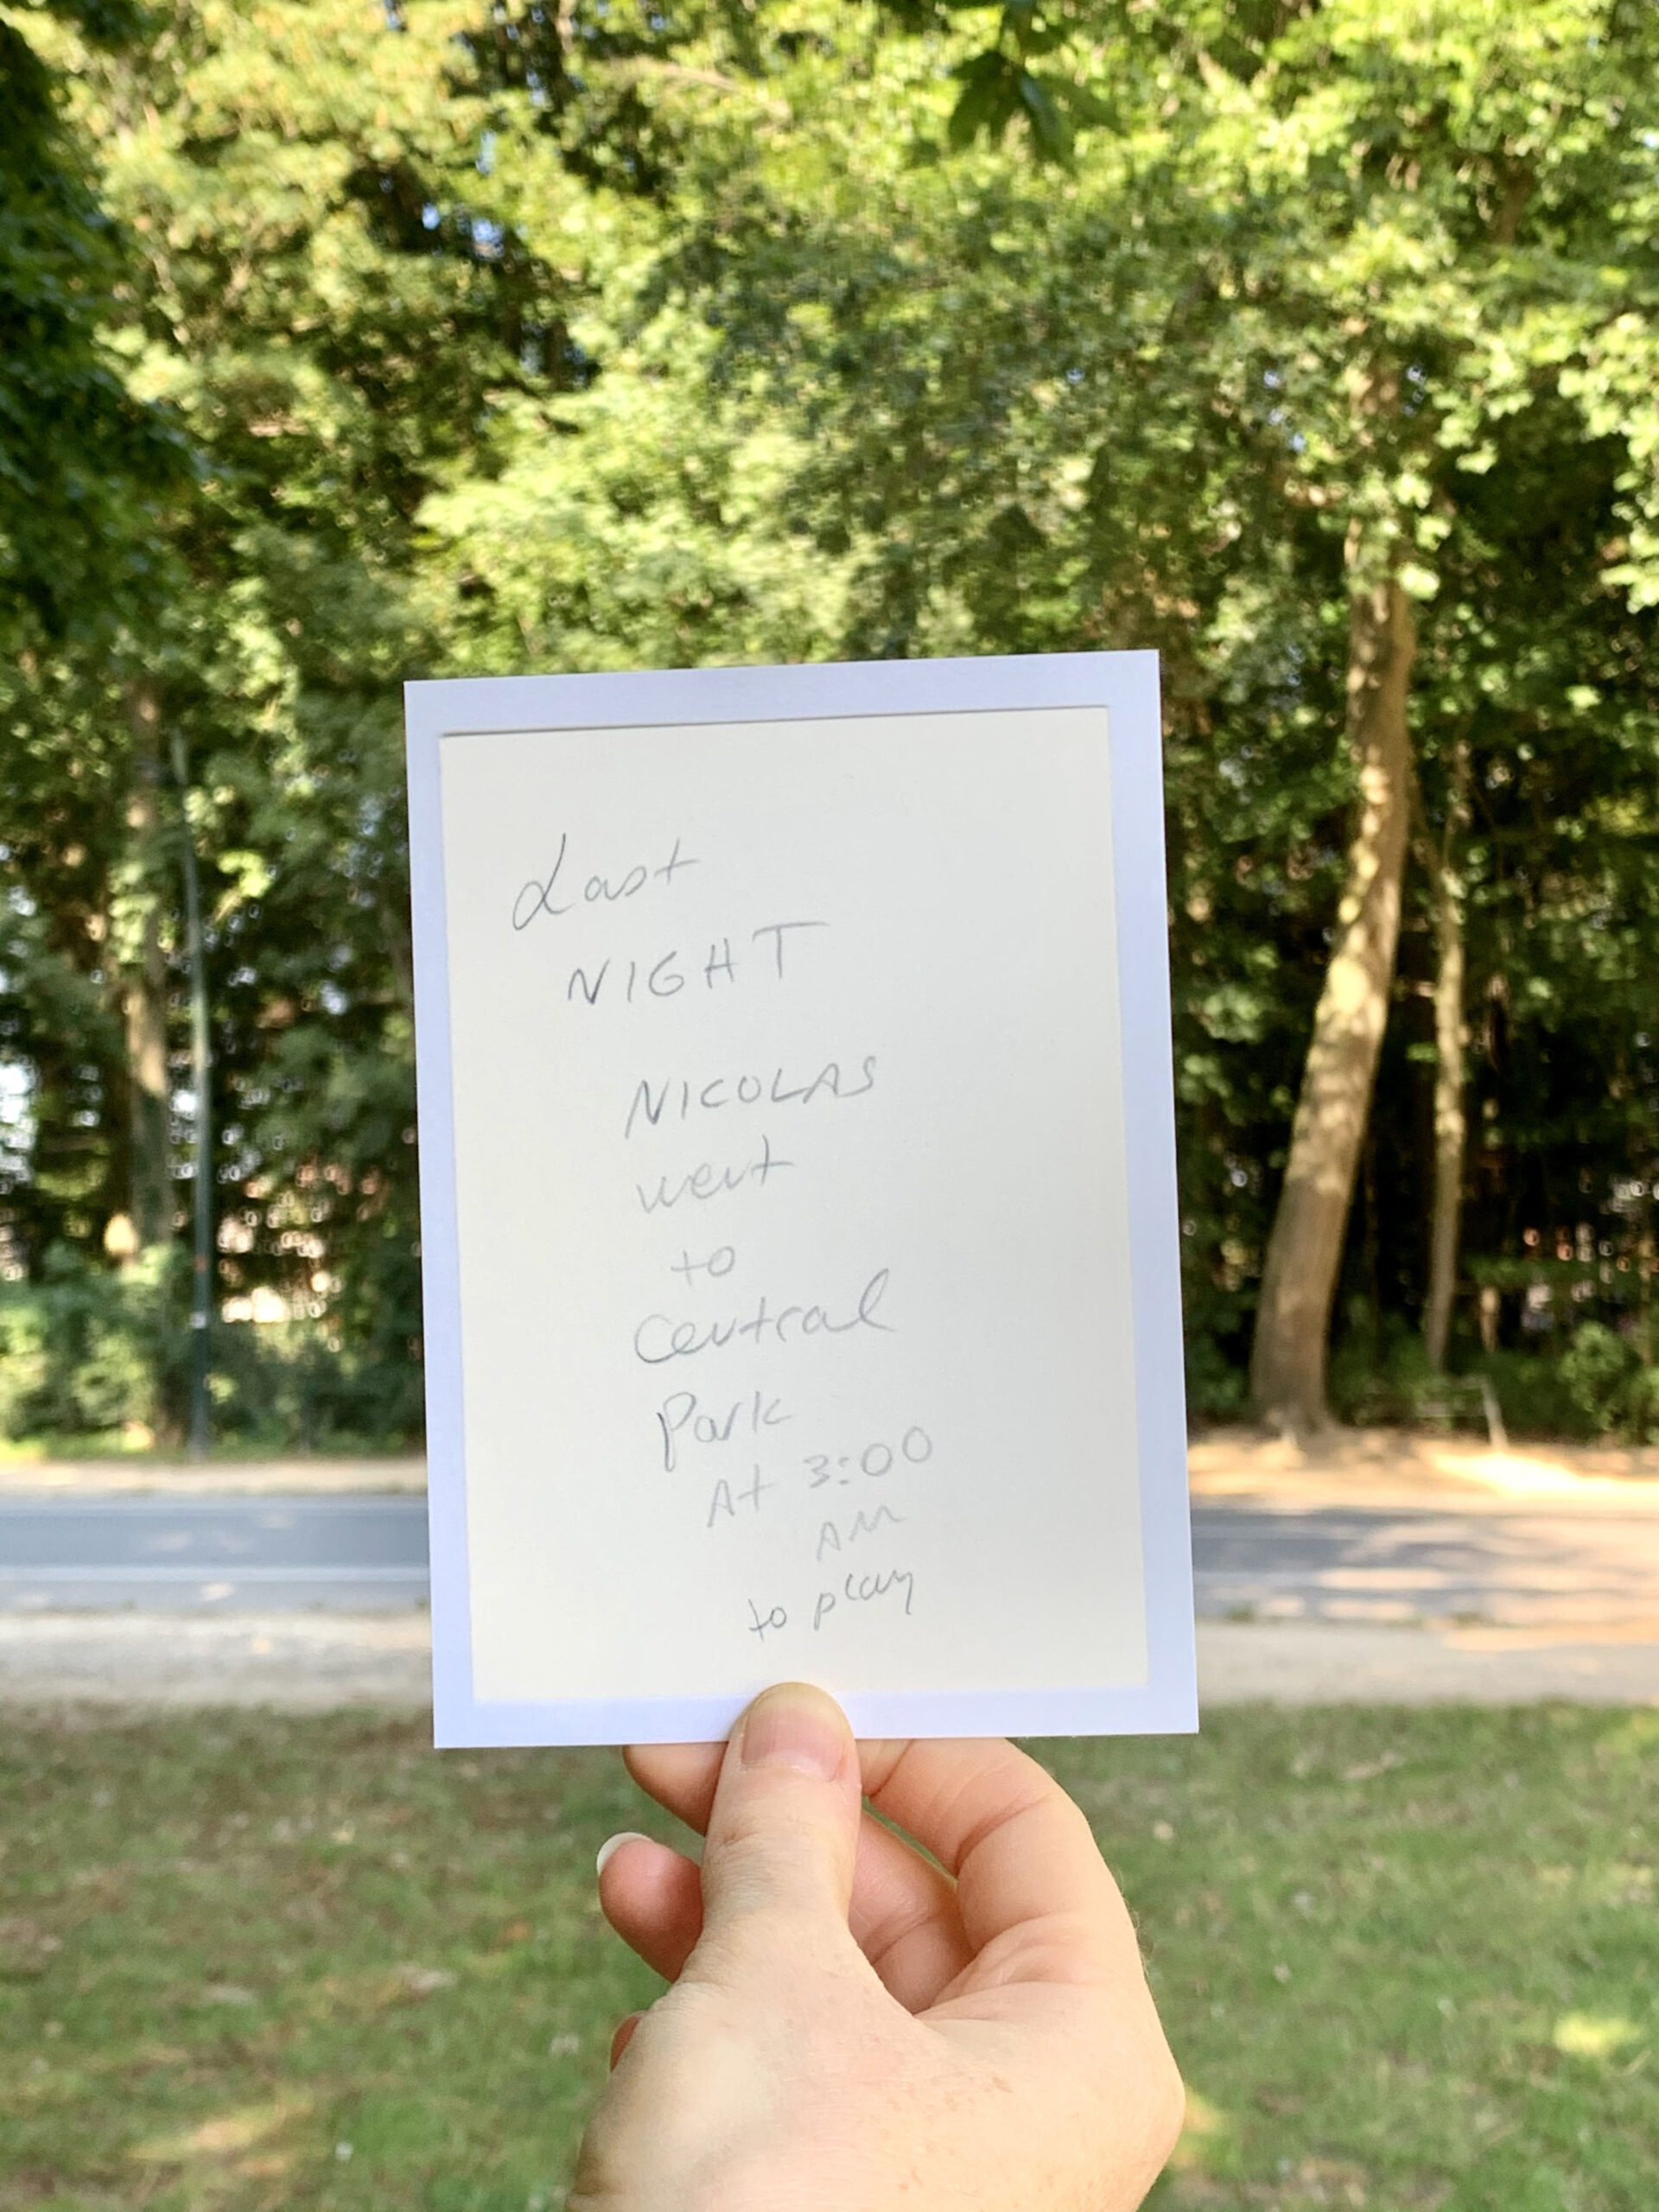 Last
NIGHT
NICOLAS
went
to
Central
Park
At 3:00
AM
to play